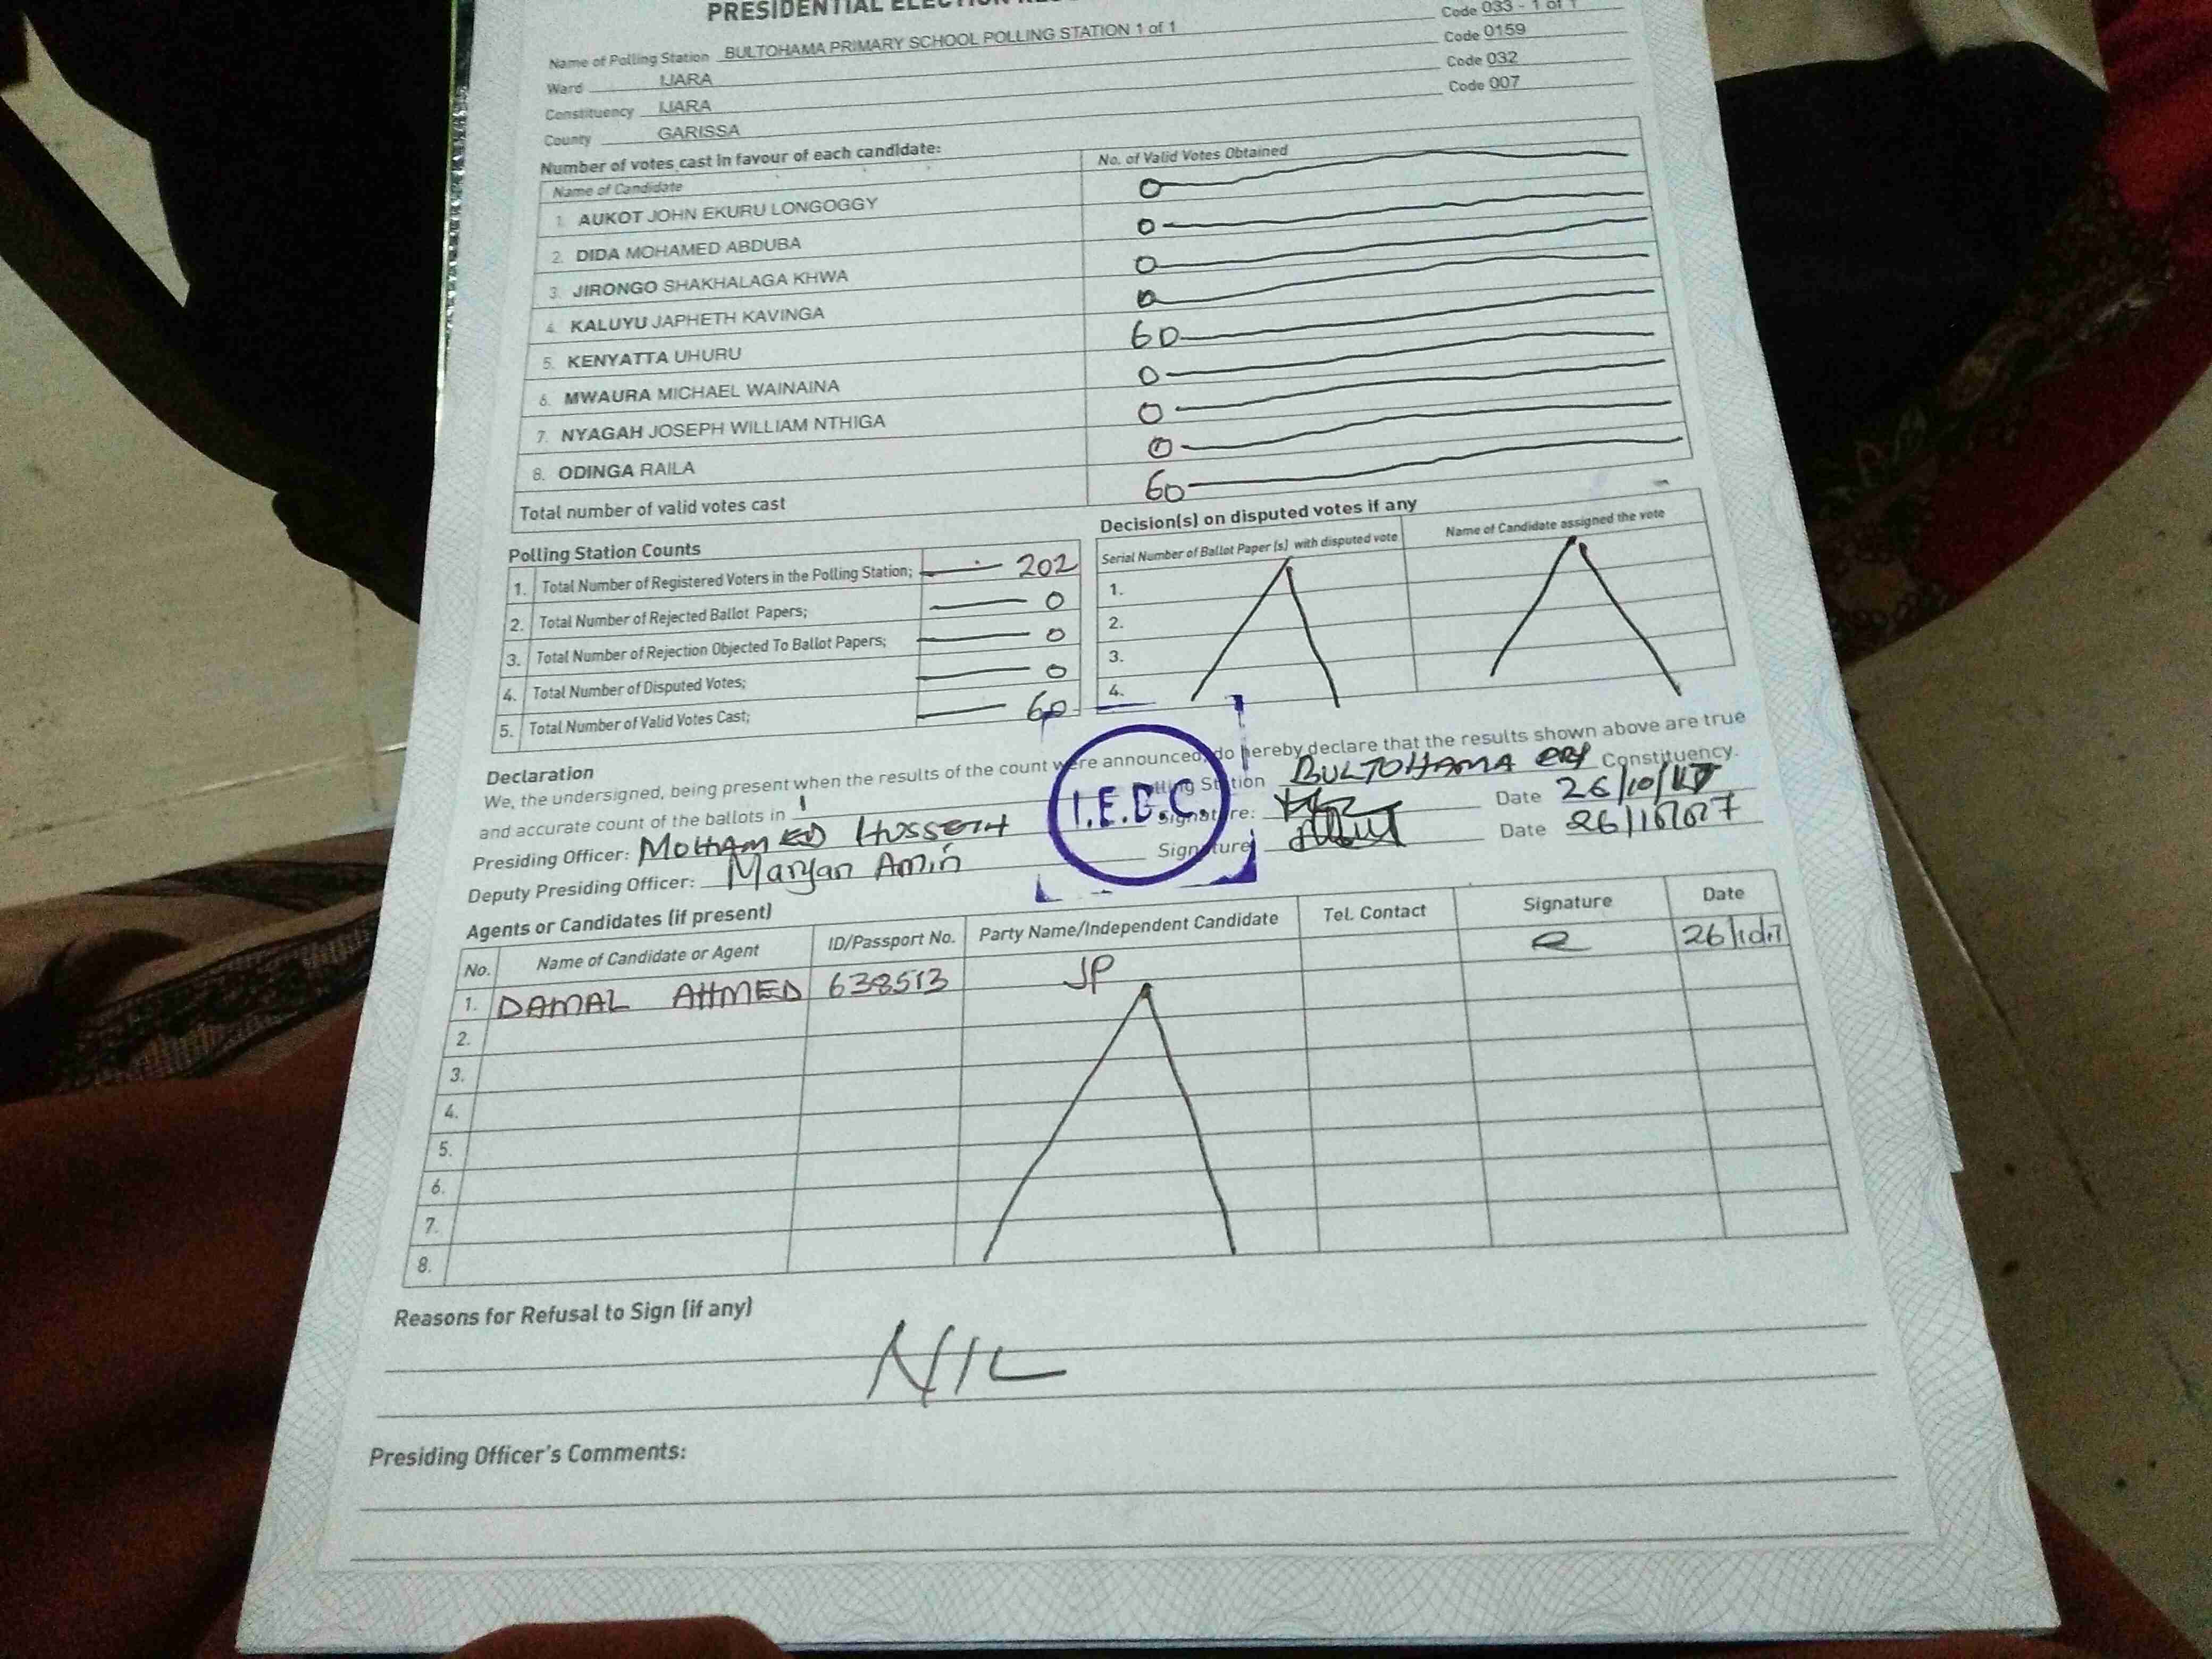 PRESIDENTIAL ELECTION
Name of Polling Station BULTOHAMA PRIMARY SCHOOL POLLING STATION 1 of 1 Code 033 - 1 of 1
Ward IJARA Code 0159
Constituency IJARA Code 032
County GARISSA Code 007
Number of votes cast in favour of each candidate:
Name of Candidate No. of Valid Votes Obtained
1. AUKOT JOHN EKURU LONGOGGY 0
2. DIDA MOHAMED ABDUBA 0
3. JIRONGO SHAKHALAGA KHWA 0
4. KALUYU JAPHETH KAVINGA 0
5. KENYATTA UHURU 60
6. MWAURA MICHAEL WAINAINA 0
7. NYAGAH JOSEPH WILLIAM NTHIGA 0
8. ODINGA RAILA 0
Total number of valid votes cast 60
Polling Station Counts
1. Total Number of Registered Voters in the Polling Station; 202
2. Total Number of Rejected Ballot Papers; 0
3. Total Number of Rejection Objected To Ballot Papers; 0
4. Total Number of Disputed Votes; 0
5. Total Number of Valid Votes Cast; 60
Decision(s) on disputed votes if any
Serial Number of Ballot Paper (s) with disputed vote Name of Candidate assigned the vote
1.
2.
3.
4.
Declaration
We, the undersigned, being present when the results of the count were announced, do hereby declare that the results shown above are true
and accurate count of the ballots in 1 Polling Station BULTOHAMA Constituency.
Presiding Officer: MOHAMED HUSSEIN Signature: Date 26/10/17
Deputy Presiding Officer: Maryan Amin Signature Date
I.E.B.C.
Agents or Candidates (if present)
No. Name of Candidate or Agent ID/Passport No. Party Name/Independent Candidate Tel. Contact Signature Date
1. DAMAL AHMED 638513 JP 26/10/17
2.
3.
4.
5.
6.
7.
8.
Reasons for Refusal to Sign (if any)
NIL
Presiding Officer's Comments: